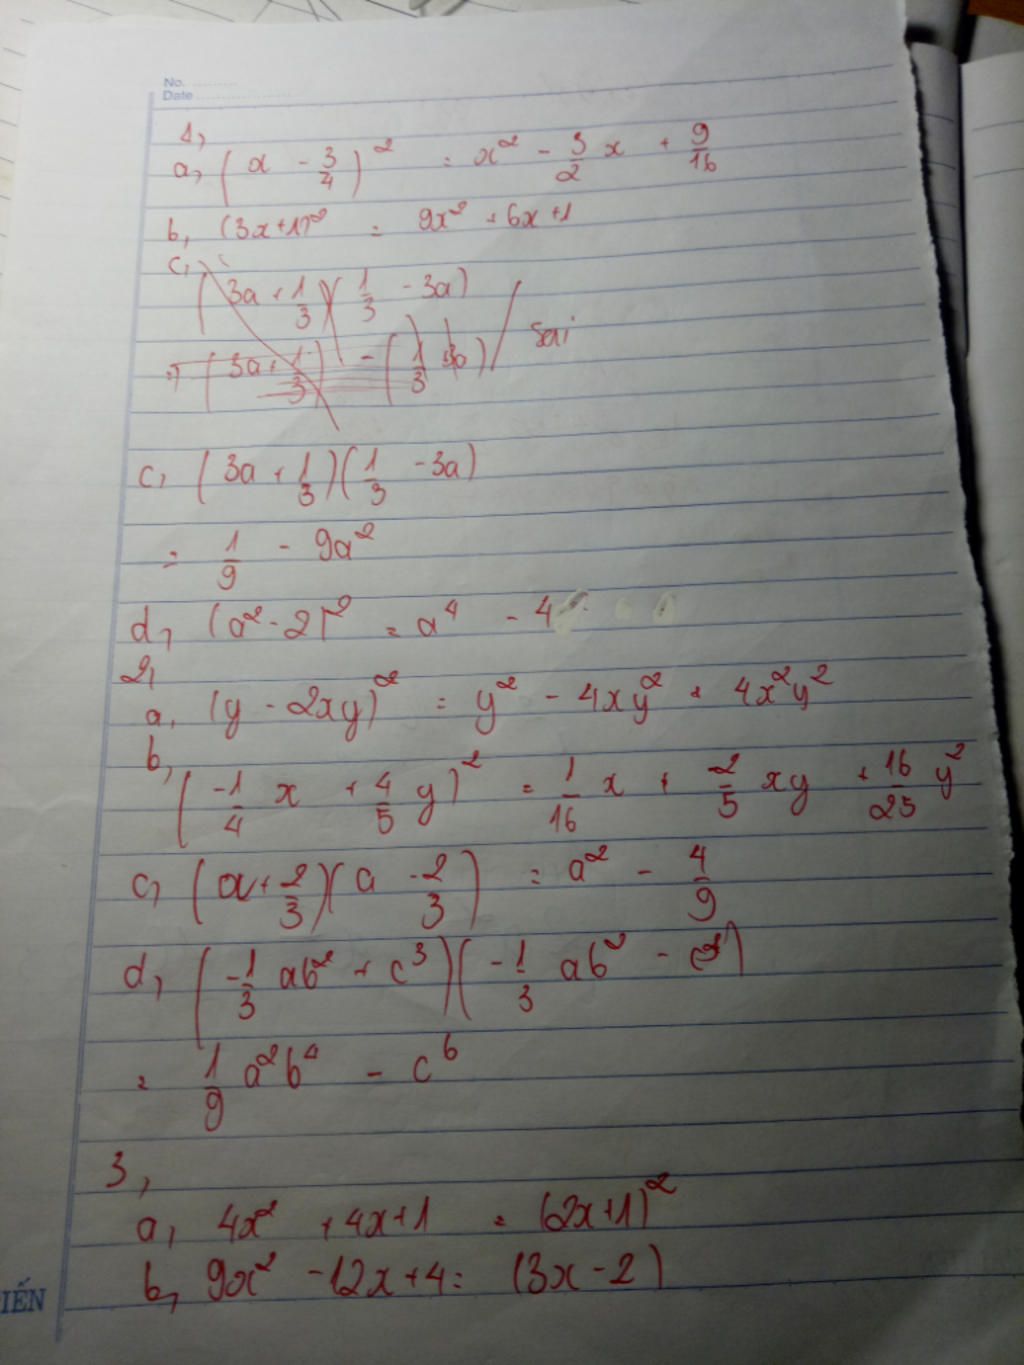 No. ..........
Date ..........
1,
a, (x - 3/4)² = x² - 3/2 x + 9/16
b, (3x+1)² = 9x² + 6x+1
c,
(3a + 1/3)(1/3 - 3a)
= (3a + 1/3) - (1/3 3a) Sai
c, (3a + 1/3)(1/3 - 3a)
= 1/9 - 9a²
d, (a² - 2)² = a⁴ - 4
2,
a, (y - 2xy)² = y² - 4xy² + 4x²y²
b,
(-1/4 x + 4/5 y)² = 1/16 x + 2/5 xy + 16/25 y²
c, (a + 2/3)(a - 2/3) = a² - 4/9
d, (-1/3 ab² + c³)(-1/3 ab² - c³)
= 1/9 a²b⁴ - c⁶
3,
a, 4x² + 4x+1 = (2x+1)²
b, 9x² - 12x+4 = (3x - 2)
IẾN